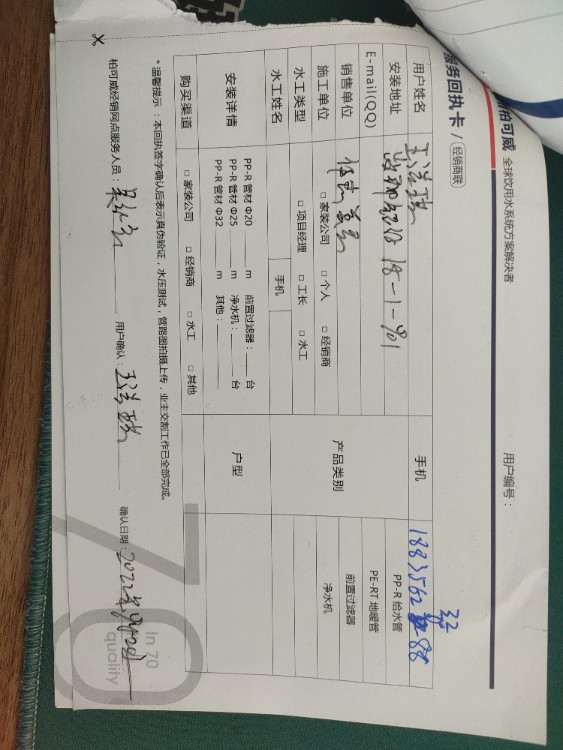 柏可威 全球饮用水系统方案解决者
用户编号：
服务回执卡 / 经销商联
用户姓名
手机 1883562 88
32
安装地址 18-1-901
E-mail(QQ)
销售单位
产品类别
PP-R 给水管
PE-RT 地暖管
前置过滤器
净水机
施工单位 □ 家装公司 □ 个人 □ 经销商
水工类型 □ 项目经理 □ 工长 □ 水工
水工姓名 手机
安装详情
PP-R 管材 Φ20 ____ m 前置过滤器：____ 台
PP-R 管材 Φ25 ____ m 净水机：____ 台
PP-R 管材 Φ32 ____ m 其他：____
户型
购买渠道 □ 家装公司 □ 经销商 □ 水工 □ 其他
* 温馨提示：本回执签字确认后表示真伪验证，水压测试，管路图拍摄上传，业主交割工作已全部完成。
柏可威经销网点服务人员： 用户确认： 确认日期：2022年9月2日
70
In 70
quality